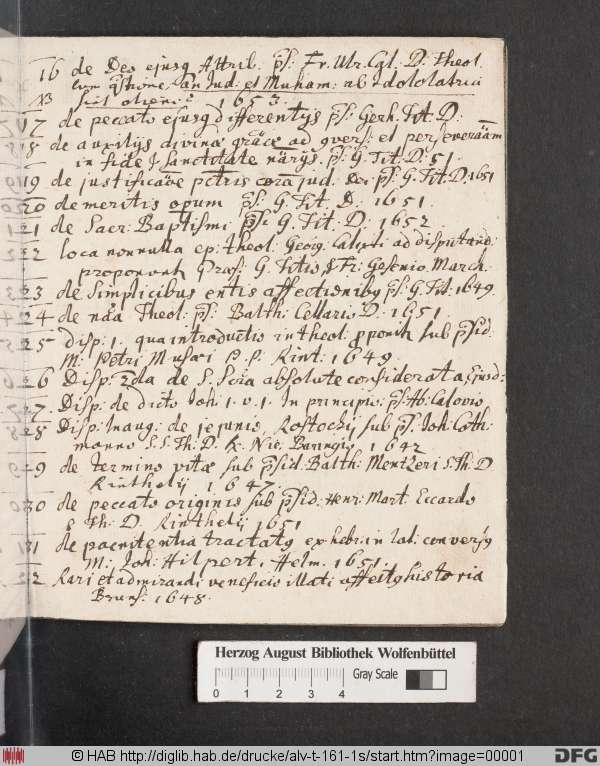 16 de Deo ejusq Attrib. ps: Fr. Ulr. Cal. D. Theol.
cum qstione an Jud: et Muham: ab Idololatria
NB sint alieni 1653.
17 de peccato ejusq differentijs ps: Gerh. Tit. D.
18 de auxilijs divinæ gratiæ ad et perseverandum
in fide & sanctitate ps. G. Tit. D. 51.
19 de justificatione petris jud. ps. G. Tit. D. 1651
20 de meritis opum ps: G. Tit. D. 1651.
21 de Sacr. Baptismi ps: G. Tit. D. 1652
22 loca nonnulla ep: theol. Georg. Calixti ad disputand:
proponunt Præs: G. Titio & Fr: Gesenio. March.
23 de Simplicibus entis affectionibq ps: G. Tit. 1649.
24 de nãa Theol: ps: Balth: Cellario D. 1651.
25 disp: 1. qua introductio in theol. pponit sub psid.
M: Petri Musæi P. P. Rint. 1649.
26 Disp: 2da de S. Scra absolute considerata, Ejusd:
27. Disp: de dicto Joh: 1. v. 1. In principio: ps. Ab: Calovio.
28 Disp: Inaug: de jejunio, Rostochij sub ps. Joh: Coth-
manno S. S. Th: D. R. Nic. Baringio 1642
29 de termino vitæ sub psid: Balth: Mentzeri S. Th: D.
Rinthelij 1647.
30 de peccato originis sub psid: Henr: Mart: Eccardo
S. Th: D. Rinthelij 1651
31 de pænitentia tractatq ex hebr: in lat: conversq
M: Joh: Hilpert. Helm. 1651.
32 Rari et admirandi veneficio illati affectq historia
Bruns: 1648.
Herzog August Bibliothek Wolfenbüttel
0 1 2 3 4 Gray Scale
© HAB http://diglib.hab.de/drucke/alv-t-161-1s/start.htm?image=00001
DFG